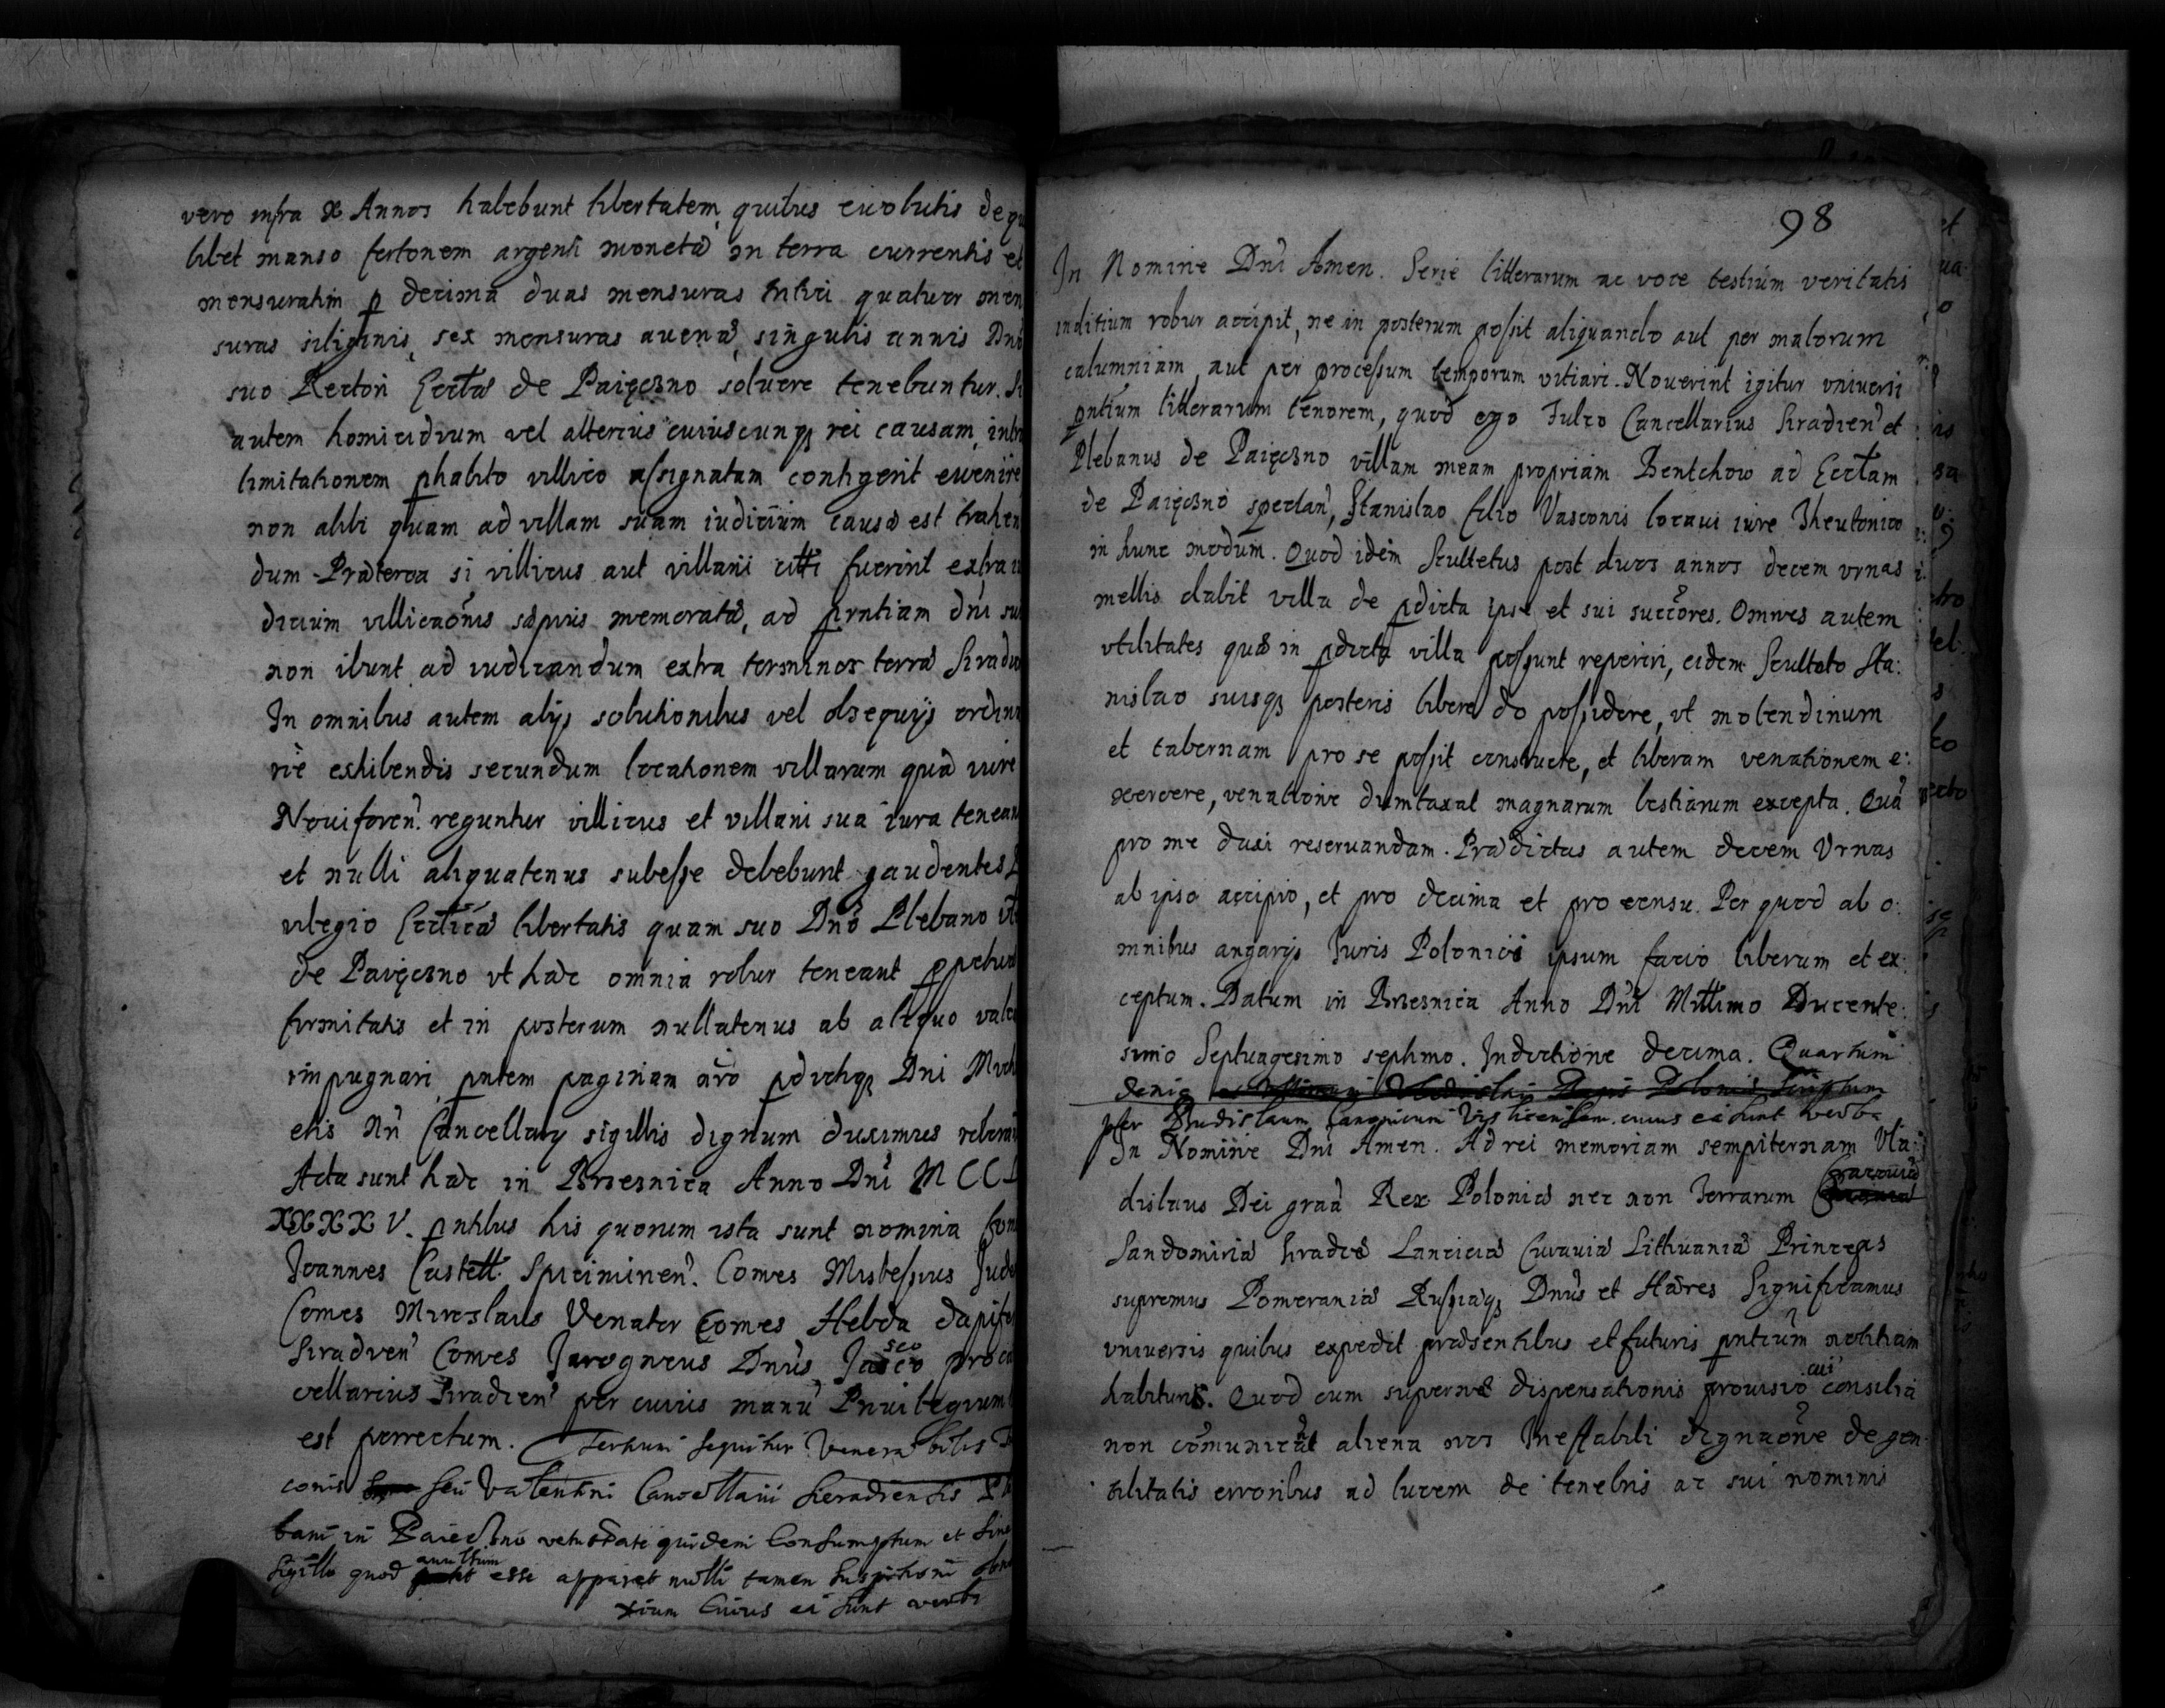 vero infra X Annos habebunt libertatem, quibus evolutis de qu
libet manso fertonem argenti monetæ in terra currentis et
mensuratim p decima duas mensuras tritici quatuor men
suras siliginis, sex mensuras avenæ, singulis annis Dno
suo Rectori Ecctæ de Paięczno soluere tenebuntur. Si
autem homicidium vel alterius cuiuscunq rei causam, intra
limitationem phabito villico assignatam contigerit evenire
non alibi quam ad villam suam iudicium causæ est trahen
dum. Præterea si villicus aut villani citti fuerint extra iu
dicium villicaonis sæpius memoratæ, ad pntiam dni sui
non ibunt ad iudicandum extra terminos terræ Siradien
In omnibus autem alijs solutionibus vel obsequijs ordina
rie exhibendis secundum locationem villarum quæ iure
Noviforen. reguntur villicus et villani sua iura teneant
et nulli aliquatenus subesse debebunt gaudentes
vilegio Eccticæ libertatis quam suo Dno Plebano vt
de Paięczno vt hæc omnia robur teneant ppetuæ
firmitatis et in posterum nullatenus ab aliquo vale
impugnari, pntem paginam nro pdictiq Dni Mich
elis Nri Cancellarij sigillis dignum duximus robora
Acta sunt hæc in Brzeznica Anno Dni M CC L
XXXX V. pntibus his quorum ista sunt nomina Com
Joannes Castell. Spiciminen. Comes Mistessius Jude
Comes Miroslaus Venator Comes Hebda dapifer
Siradien Comes Jarogneus Dnus Jasco sco proca
cellarius Siradien per cuius manu Privilegium
est porrectum. Tertium sequitur Venerabilis
conis seu Valentini Cancellarii Sieradiensis Ple
bani in Paięczno vetustate quidem Consumptum et sine
sigillo quod avulsum esse apparet nulli tamen suspitioni obno
xium Cuius ea sunt verba
98
In Nomine Dni Amen. Serie litterarum ac voce testium veritatis
inditium robur accipit, ne in posterum possit aliquando aut per malorum
calumniam, aut per processum temporum vitiari. Noverint igitur vniversi
pntium litterarum tenorem, quod ego Fulco Cancellarius Siradien et
Plebanus de Paięczno villam meam propriam Bentchow ad Ecctam
de Paięczno spectan, Stanislao filio Vasconis locavi iure Theutonico
in hunc modum. Quod idem Scultetus post duos annos decem vrnas
mellis dabit villa de pdicta ipse et sui succores. Omnes autem
vtilitates quæ in pdicta villa possunt reperiri, eidem Sculteto Sta:
nislao suisq posteris libere do possidere, vt molendinum
et tabernam pro se possit construere, et liberam venationem e:
xercere, venatione dumtaxat magnarum bestiarum excepta. Quã
pro me duxi reservandam. Prædictas autem decem Vrnas
ab ipso accipio, et pro decima et pro censu. Per quod ab o:
mnibus angarijs Juris Polonici ipsum facio liberum et ex:
ceptum. Datum in Brzesnica Anno Dni Millimo Ducente:
simo Septuagesimo septimo. Indictione decima. Quartum
deniq
per Vladislaum Canonicum Visliciensem. cuius ea sunt verba
In Nomine Dni Amen. Ad rei memoriam sempiternam Vla:
dislaus Dei graa Rex Poloniæ nec non Terrarum Cracoviæ
Sandomiriæ Siradiæ Lanciciæ Cuiaviæ Lithuaniæ Princeps
supremus Pomeraniæ Russiæq Dnus et Hæres Significamus
vniversis quibus expedit præsentibus et futuris pntium notitiam
habituris. Quod cum supernæ dispensationis provisio cui consilia
non communicat aliena nos Ineffabili dignaone de gen
tilitatis erroribus ad lucem de tenebris ac sui nominis